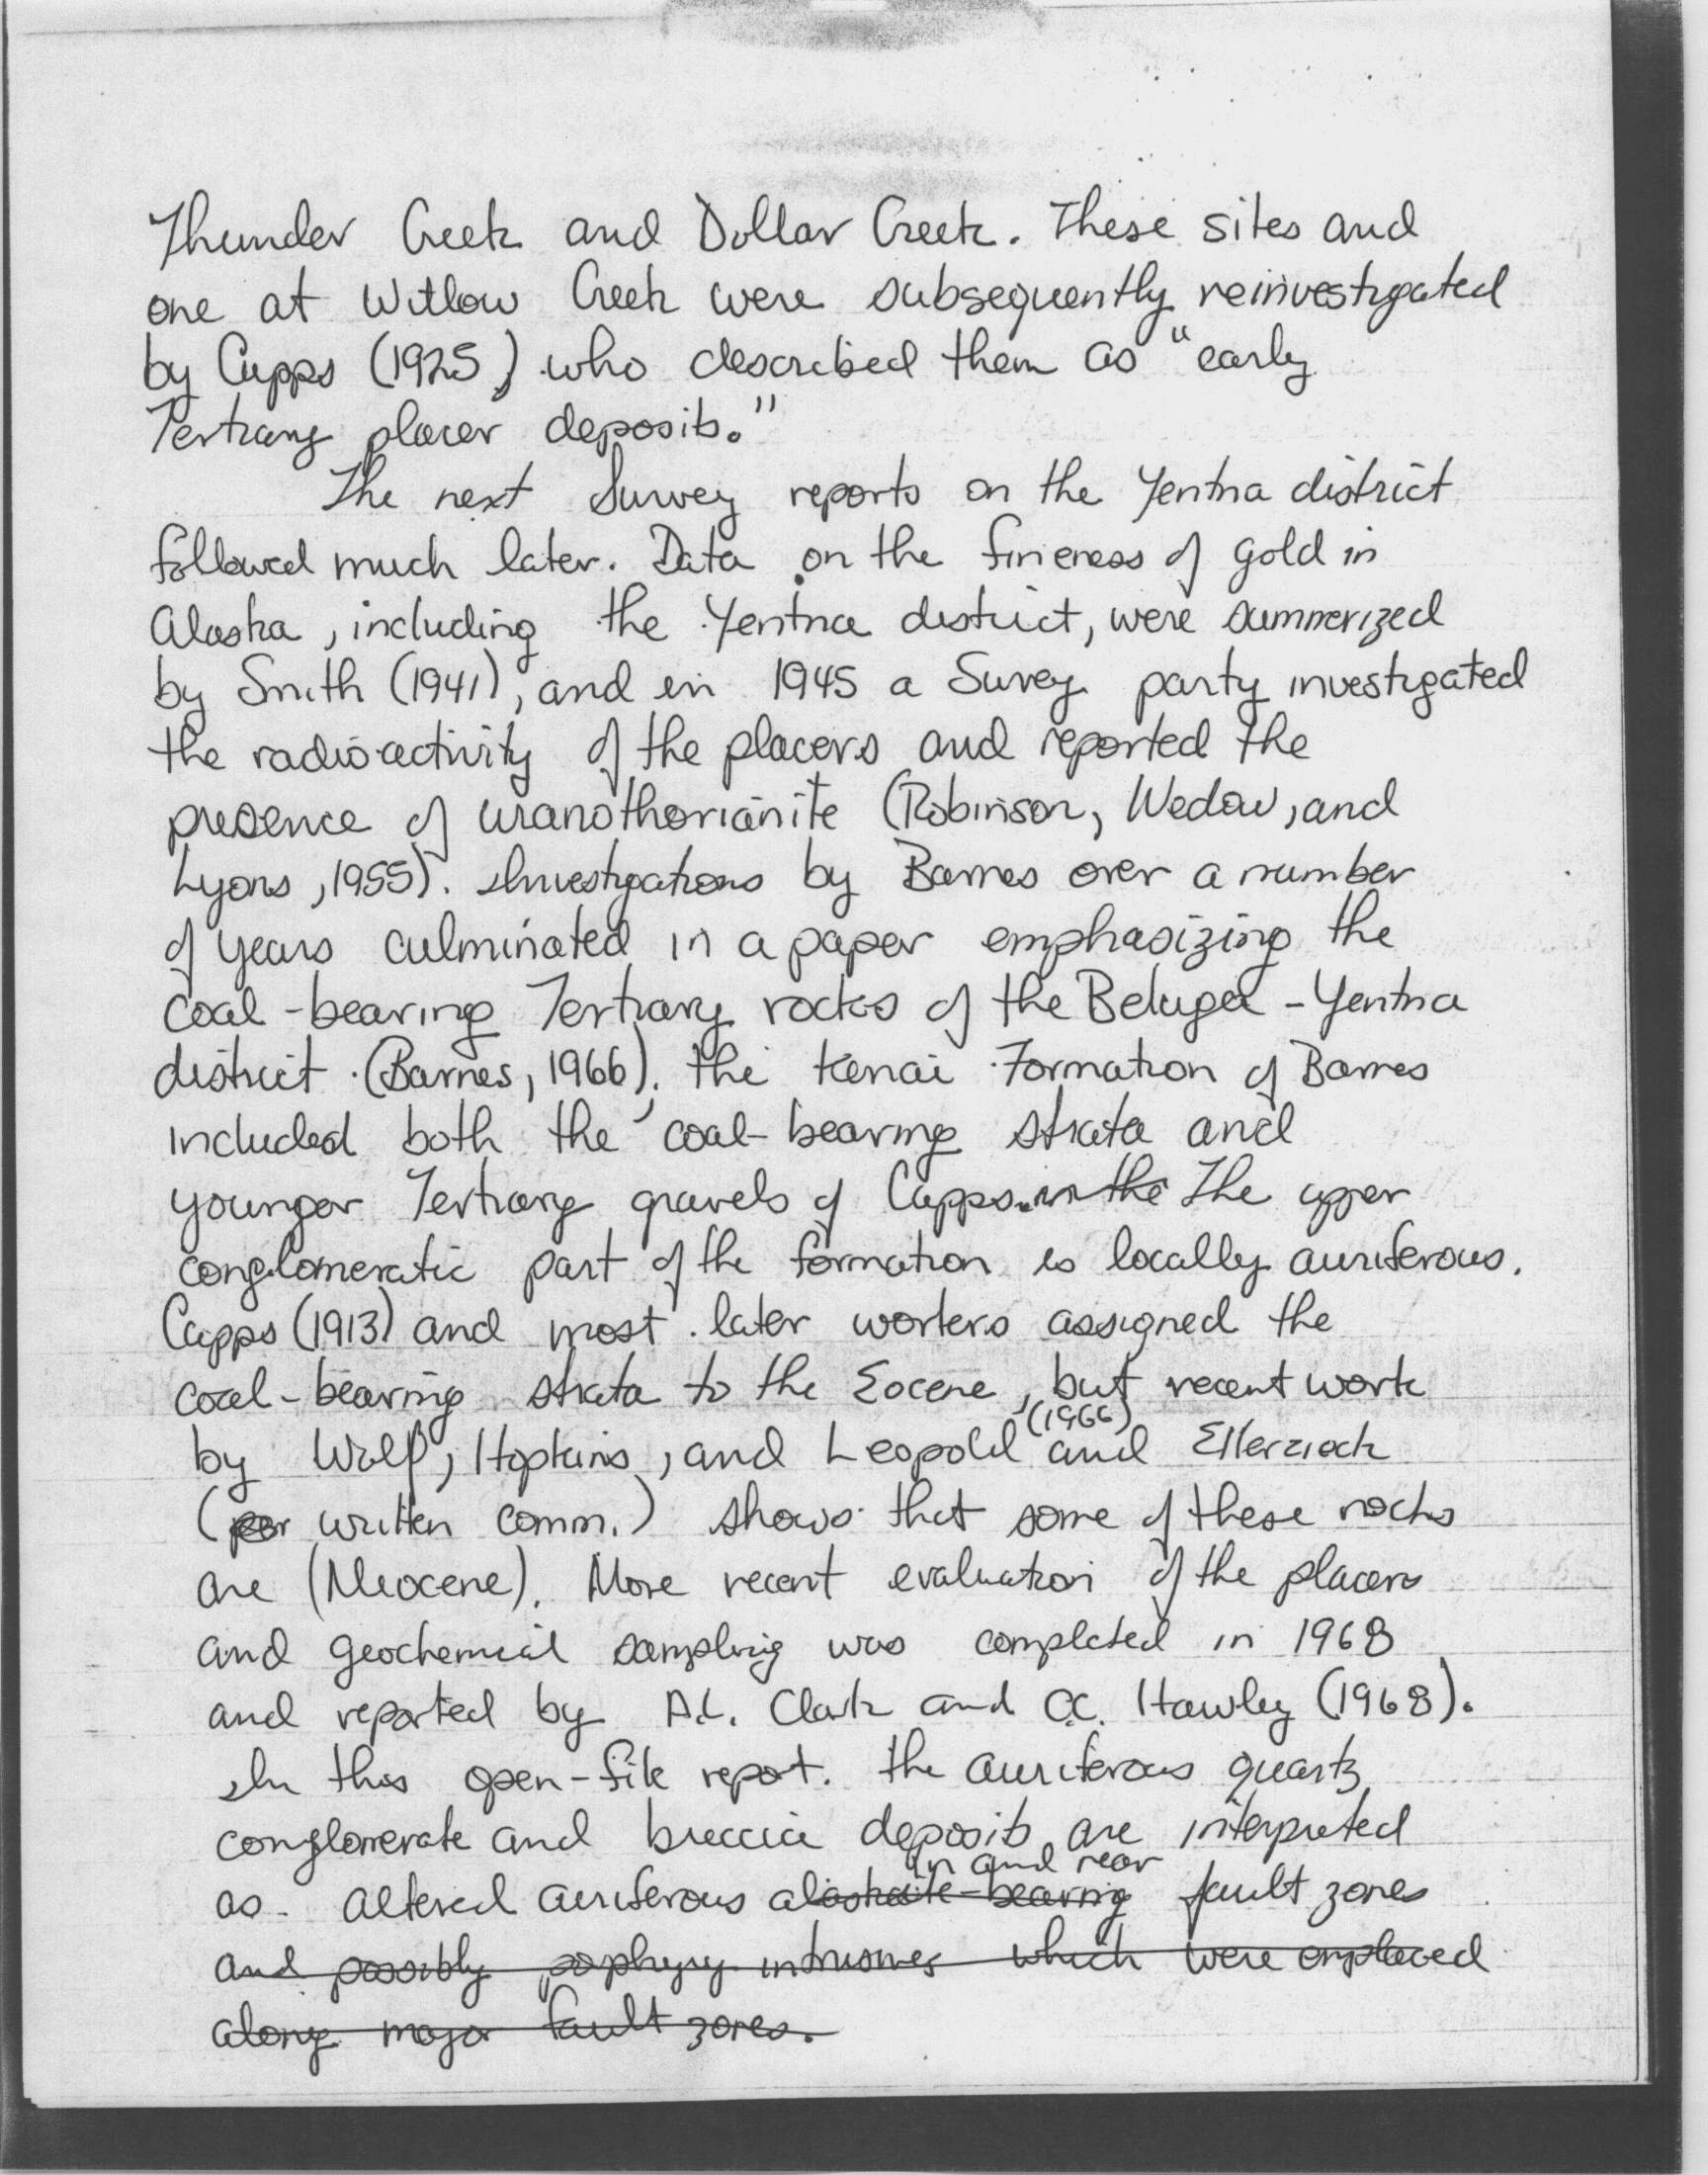 Thunder Creek and Dollar Creek. These sites and
one at Willow Creek were subsequently reinvestigated
by Capps (1925) who described them as "early
Tertiary placer deposits."
The next Survey reports on the Yentna district
followed much later. Data on the fineness of gold in
Alaska, including the Yentna district, were summerized
by Smith (1941), and in 1945 a Survey party investigated
the radioactivity of the placers and reported the
presence of uranothorianite (Robinson, Wedow, and
Lyons, 1955). Investigations by Barnes over a number
of years culminated in a paper emphasizing the
coal-bearing Tertiary rocks of the Beluga-Yentna
district (Barnes, 1966). The Kenai Formation of Barnes
included both the coal-bearing strata and
younger Tertiary gravels of Capps. in the The upper
conglomeratic part of the formation is locally auriferous.
Capps (1913) and most later workers assigned the
coal-bearing strata to the Eocene, but recent work
by Wolf, Hopkins, and Leopold (1966) and
(per written comm.) shows that some of these rocks
are (Miocene). More recent evaluation of the placers
and geochemical sampling was completed in 1968
and reported by A.L. Clark and C.C. Hawley (1968).
In this open-file report. the auriferous quartz
conglomerate and breccia deposits are interpreted
in and near
as altered auriferous alaskaite-bearing fault zones
and possibly porphyry intrusives which were emplaced
along major fault zones.